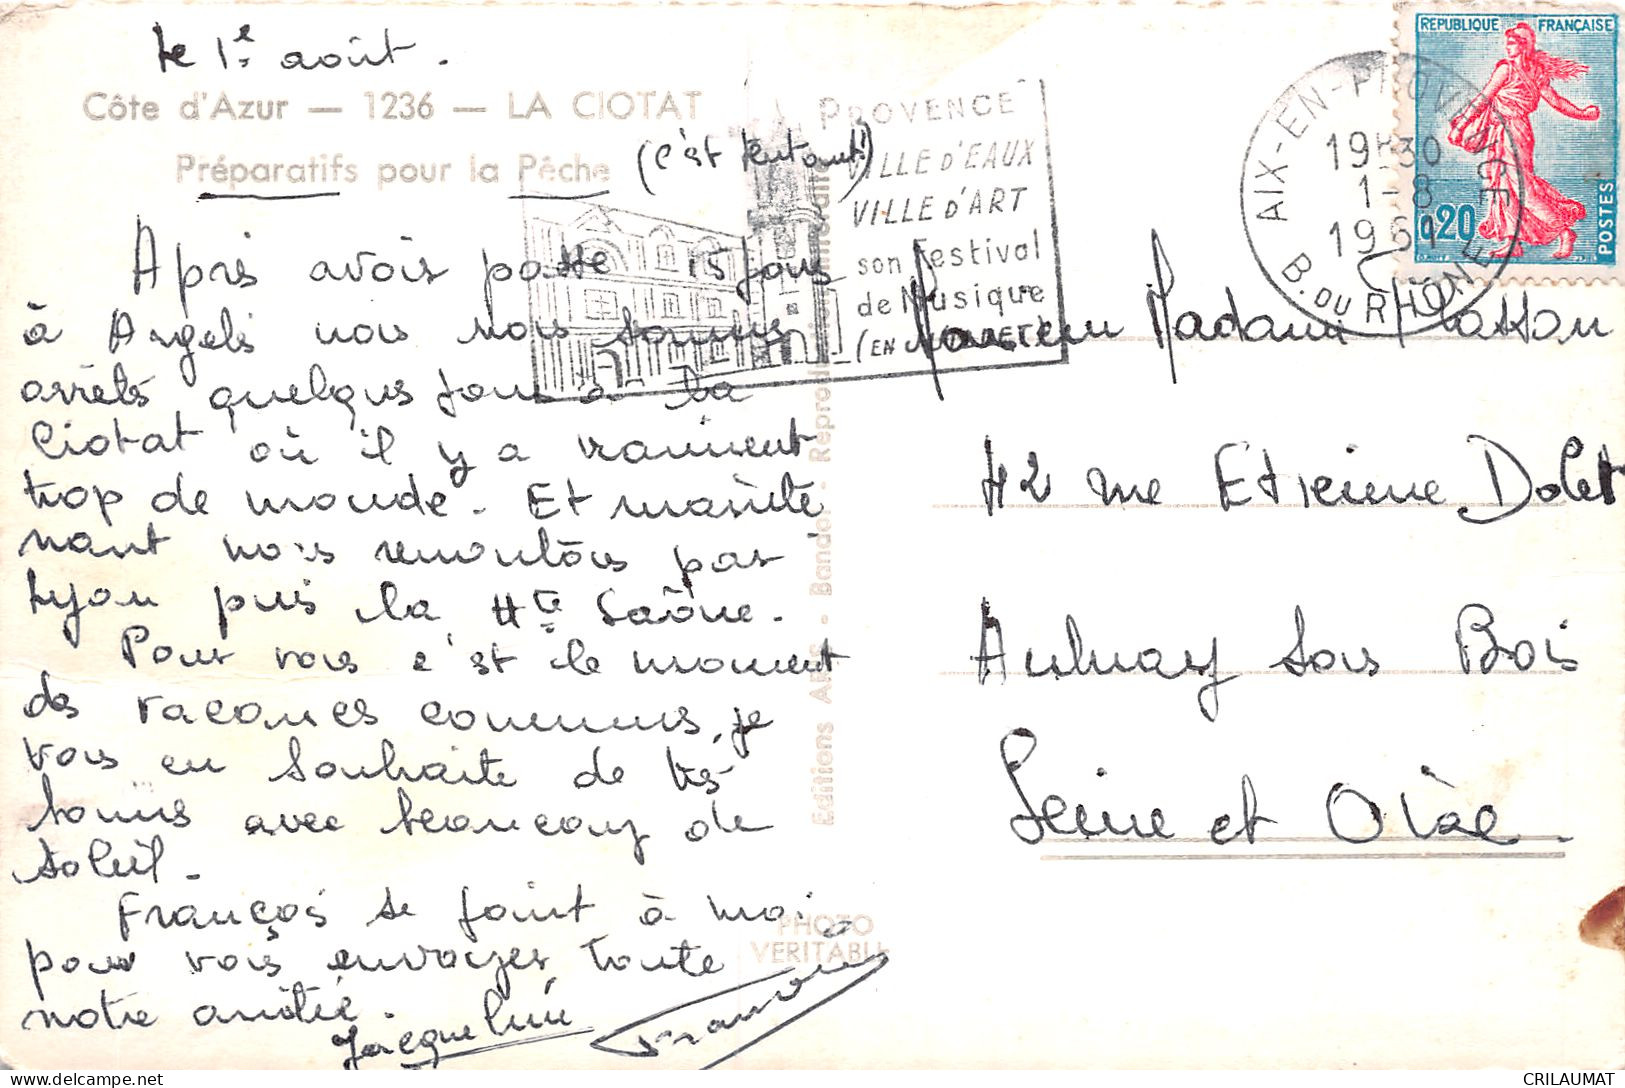 le 1er août.
Côte d'Azur — 1236 — LA CIOTAT
Préparatifs pour la Pêche
(c'est tentant!)
Après avoir passé 15 jours
à Argelès nous nous sommes
arrêtés quelques jours à la
Ciotat où il y a vraiment
trop de monde. Et mainte
nant nous remontons par
Lyon puis la Hte Saône.
Pour vous c'est le moment
des vacances commus, je
vous en souhaite de très
bonnes avec beaucoup de
soleil.
François se joint à moi
pour vous envoyer toute
notre amitié.
Jacqueline
François
Editions AR - Bandol - Reproduction interdite
PHOTO
VERITABLE
PROVENCE
VILLE D'EAUX
VILLE D'ART
son Festival
de Musique
(EN JUILLET)
AIX-EN-PROVENCE
19H30
1-8
1961
B. DU RHONE
REPUBLIQUE FRANÇAISE
0,20
POSTES
Monsieur Madame Masson
42 rue Etienne Dolet
Aulnay sous Bois
Seine et Oise
CRILAUMAT